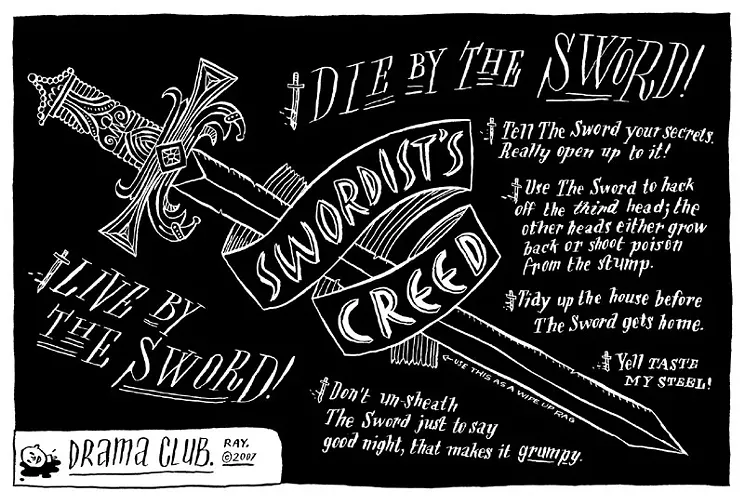 DIE BY THE SWORD!
SWORDIST'S
CREED
Tell The Sword your secrets.
Really open up to it!
Use The Sword to hack
off the third head; the
other heads either grow
back or shoot poison
from the stump.
Tidy up the house before
The Sword gets home.
Yell TASTE
MY STEEL!
LIVE BY
THE
SWORD!
USE THIS AS A WIPE UP RAG
Don't un-sheath
The Sword just to say
good night, that makes it grumpy.
DRAMA CLUB.
RAY.
©2007